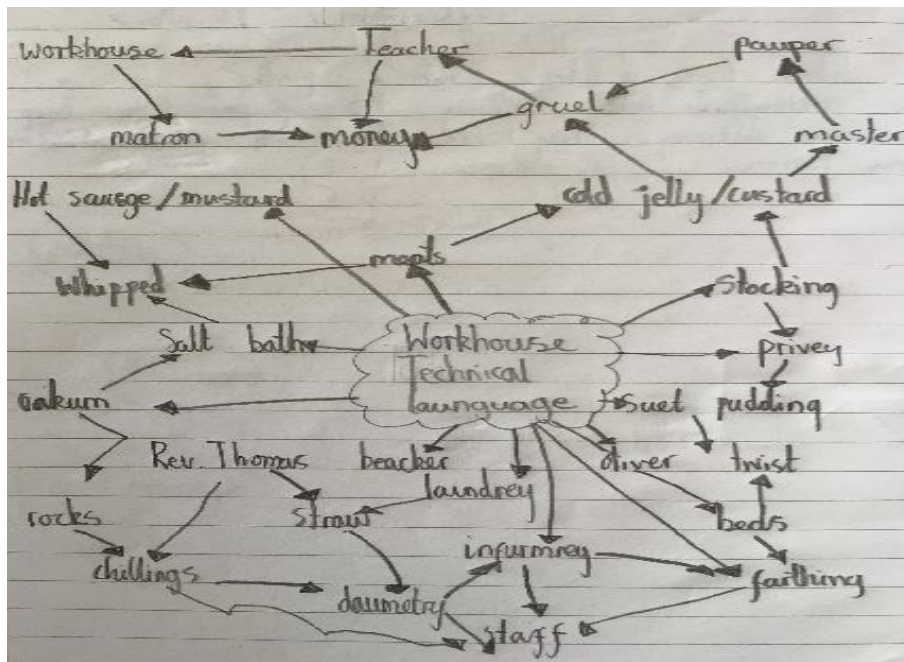 workhouse Teacher pauper
gruel
matron money master
Hot sausge/mustard cold jelly/custard
meats
whipped Stocking
Salt bath Workhouse privey
Technical
oakum launguage suet pudding
Rev. Thomas beacker diver twist
laundrey
rocks straw beds
infurmrey
chillings farthing
daumetry
staff